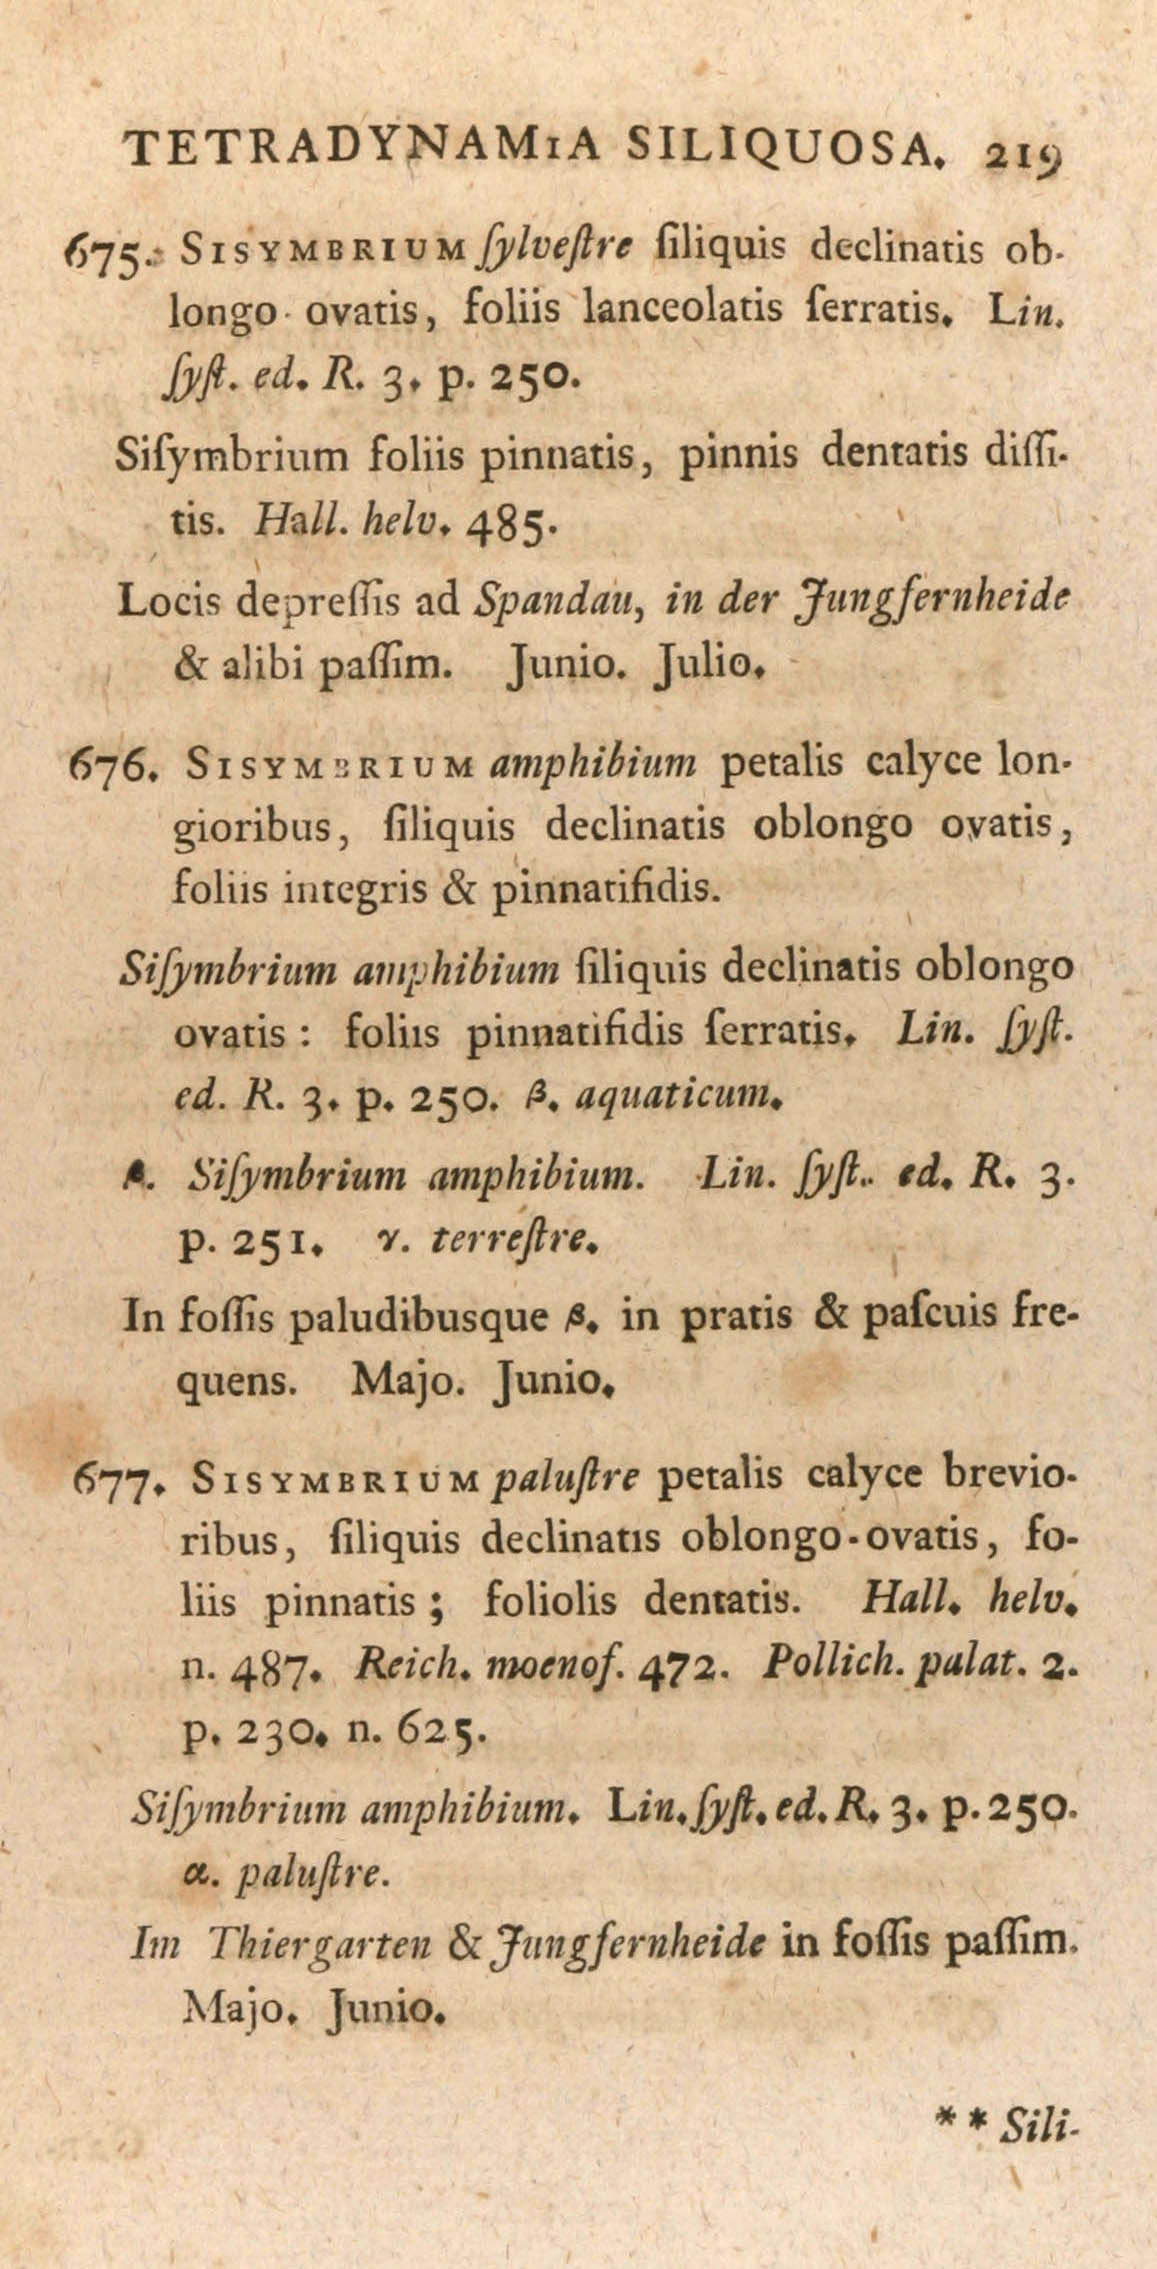 TETRADYNAMIA SILIQUOSA. 219
675. SISYMBRIUM ſylveſtre ſiliquis declinatis ob-
longo-ovatis, foliis lanceolatis ſerratis. Lin.
ſyſt. ed. R. 3. p. 250.
Siſymbrium foliis pinnatis, pinnis dentatis diſſi-
tis. Hall. helv. 485.
Locis depreſſis ad Spandau, in der Jungfernheide
& alibi paſſim. Junio. Julio.
676. SISYMBRIUM amphibium petalis calyce lon-
gioribus, ſiliquis declinatis oblongo ovatis,
foliis integris & pinnatifidis.
Siſymbrium amphibium ſiliquis declinatis oblongo
ovatis: foliis pinnatifidis ſerratis. Lin. ſyſt.
ed. R. 3. p. 250. β. aquaticum.
β. Siſymbrium amphibium. Lin. ſyſt. ed. R. 3.
p. 251. γ. terreſtre.
In foſſis paludibusque β. in pratis & paſcuis fre-
quens. Majo. Junio.
677. SISYMBRIUM paluſtre petalis calyce brevio-
ribus, ſiliquis declinatis oblongo-ovatis, fo-
liis pinnatis; foliolis dentatis. Hall. helv.
n. 487. Reich. moenoſ. 472. Pollich. palat. 2.
p. 230. n. 625.
Siſymbrium amphibium. Lin. ſyſt. ed. R. 3. p. 250.
α. paluſtre.
Im Thiergarten & Jungfernheide in foſſis paſſim.
Majo. Junio.
** Sili-